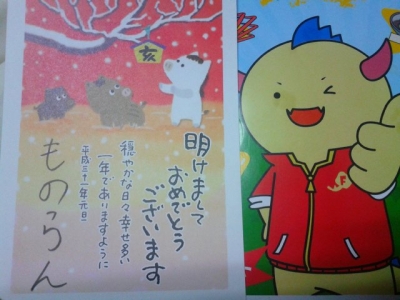 亥
明けまして
おめでとう
ございます
穏やかな日々幸せ多い
一年でありますように
平成三十一年元旦
ものらん